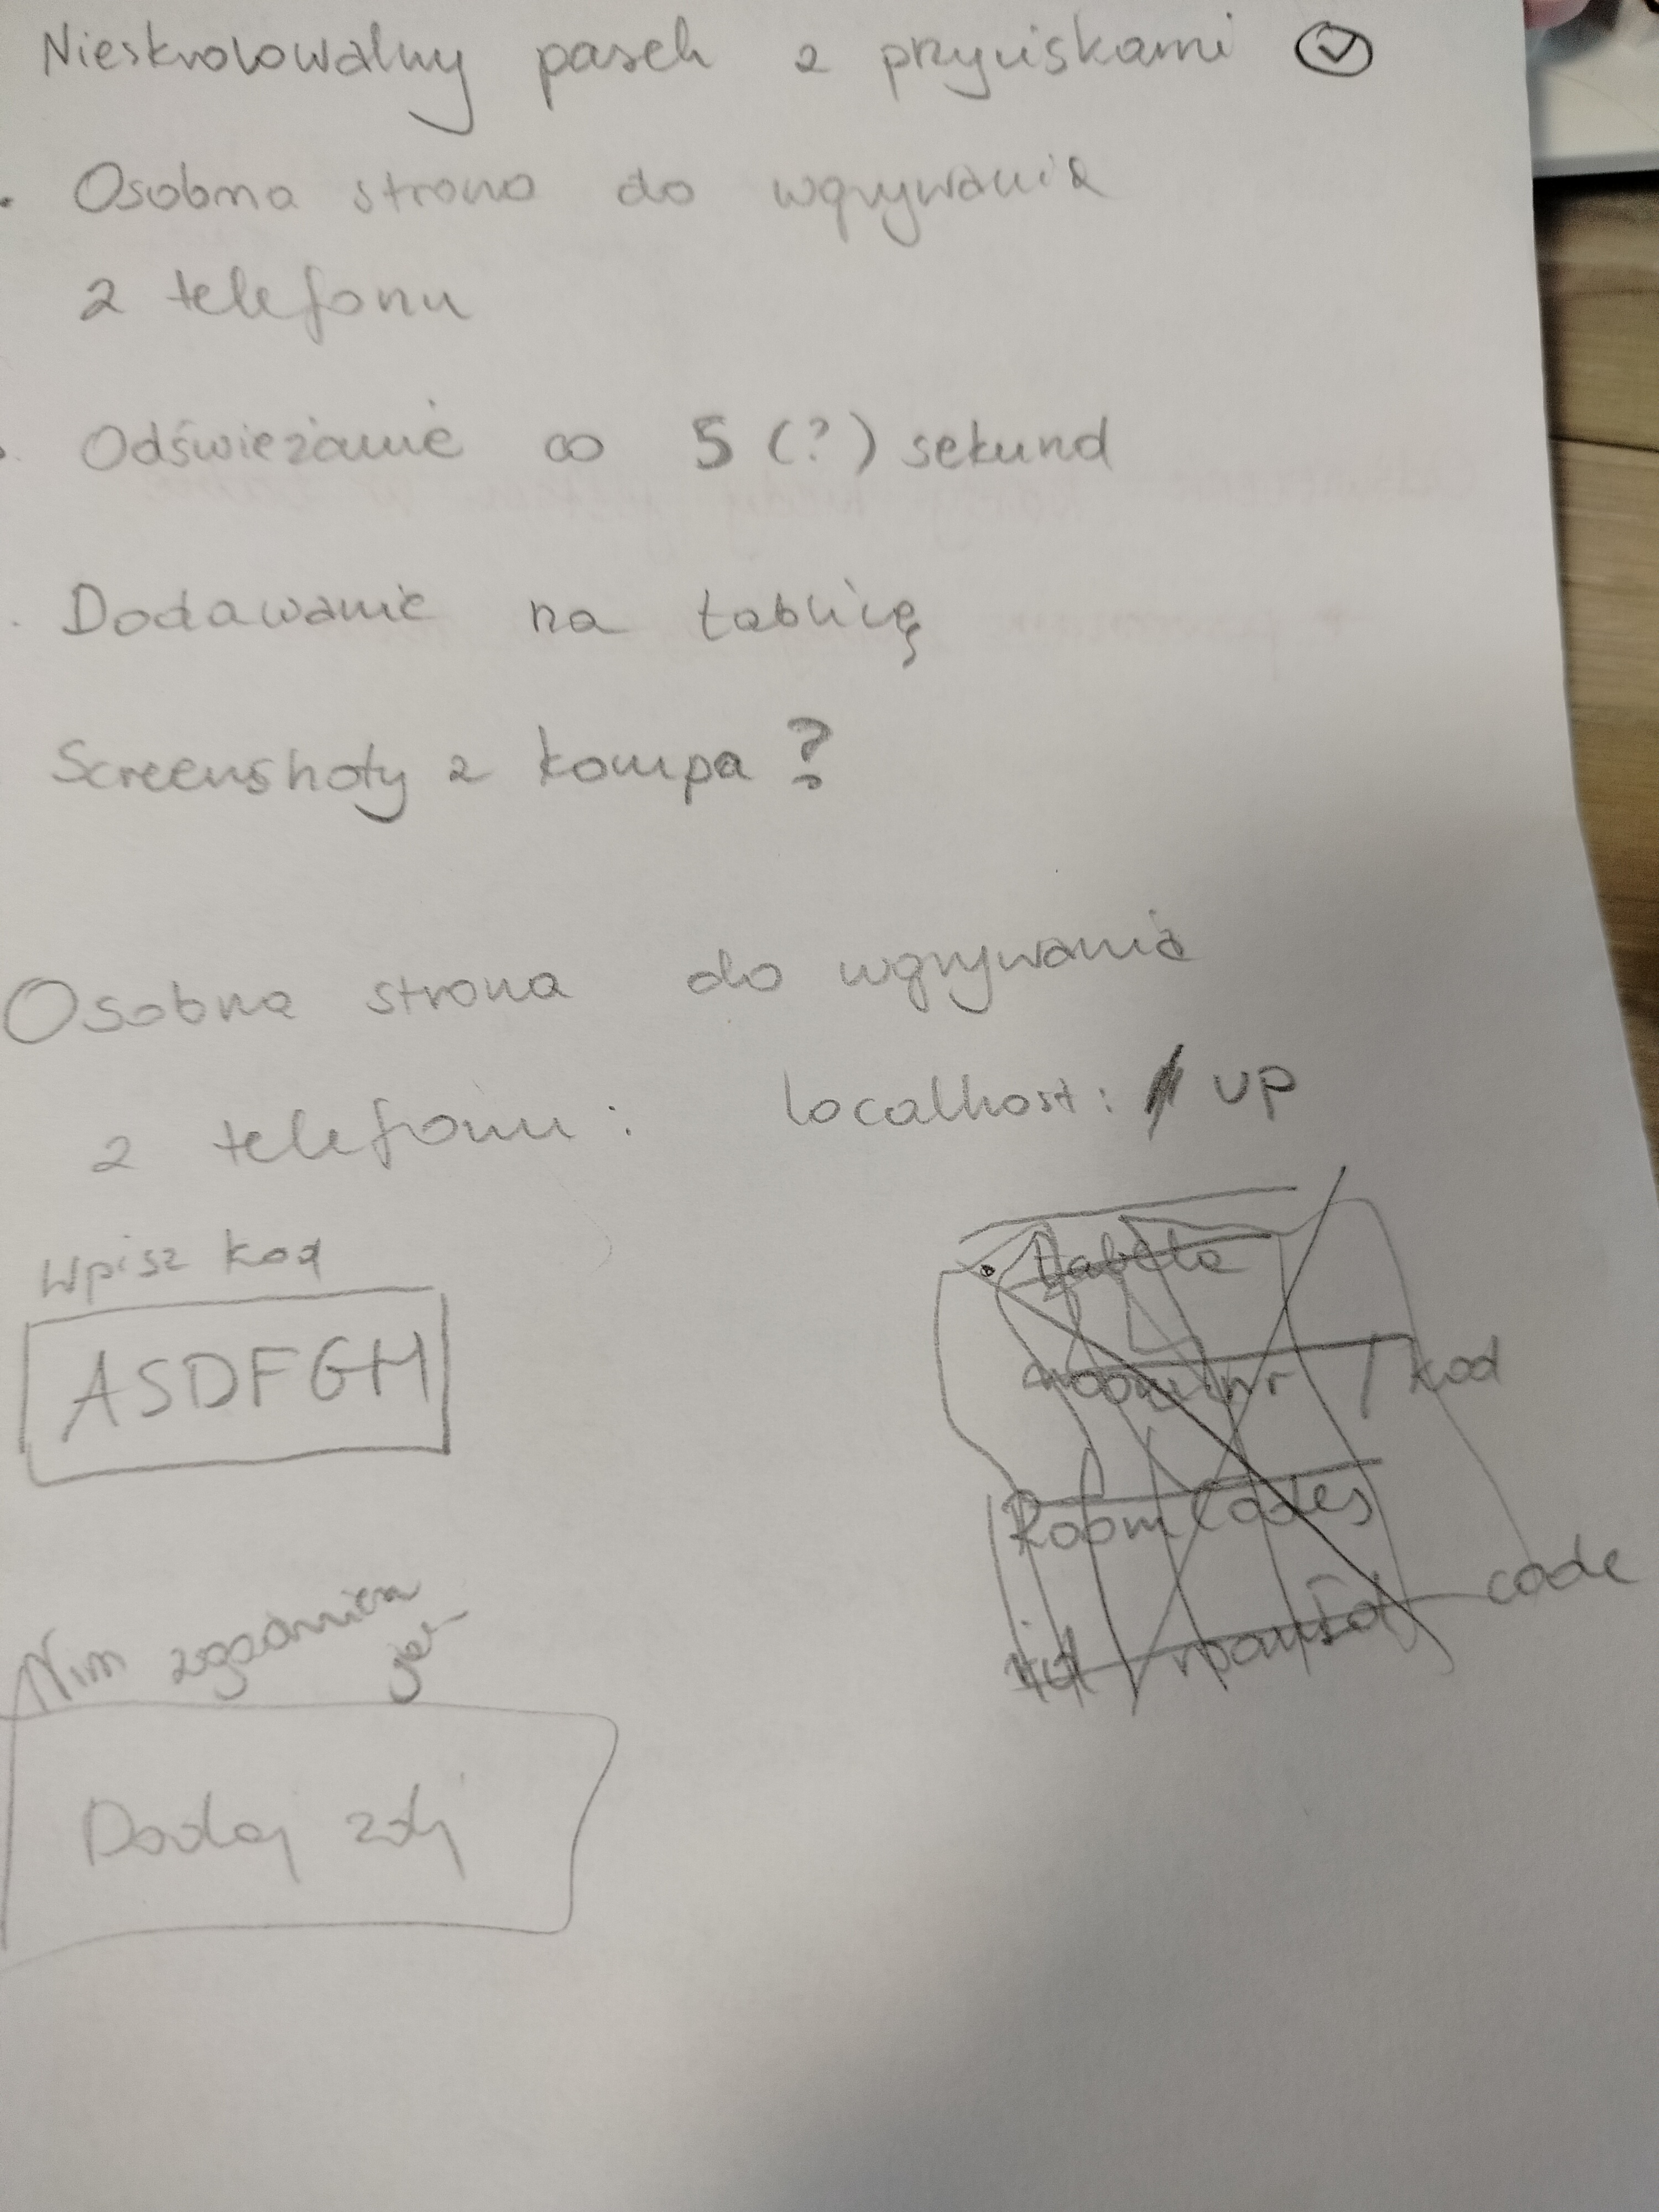 Nieskrolowalny pasek z przyciskami
Osobna strona do wgrywania
z telefonu
Odświeżanie co 5 (?) sekund
Dodawanie na tablicę
Screenshoty z kompa ?
Osobna strona do wgrywania
z telefonu : localhost: up
Wpisz kod
ASDFGH
Tabela
kod
RoomCodes
id roomId code
Dodaj zdj